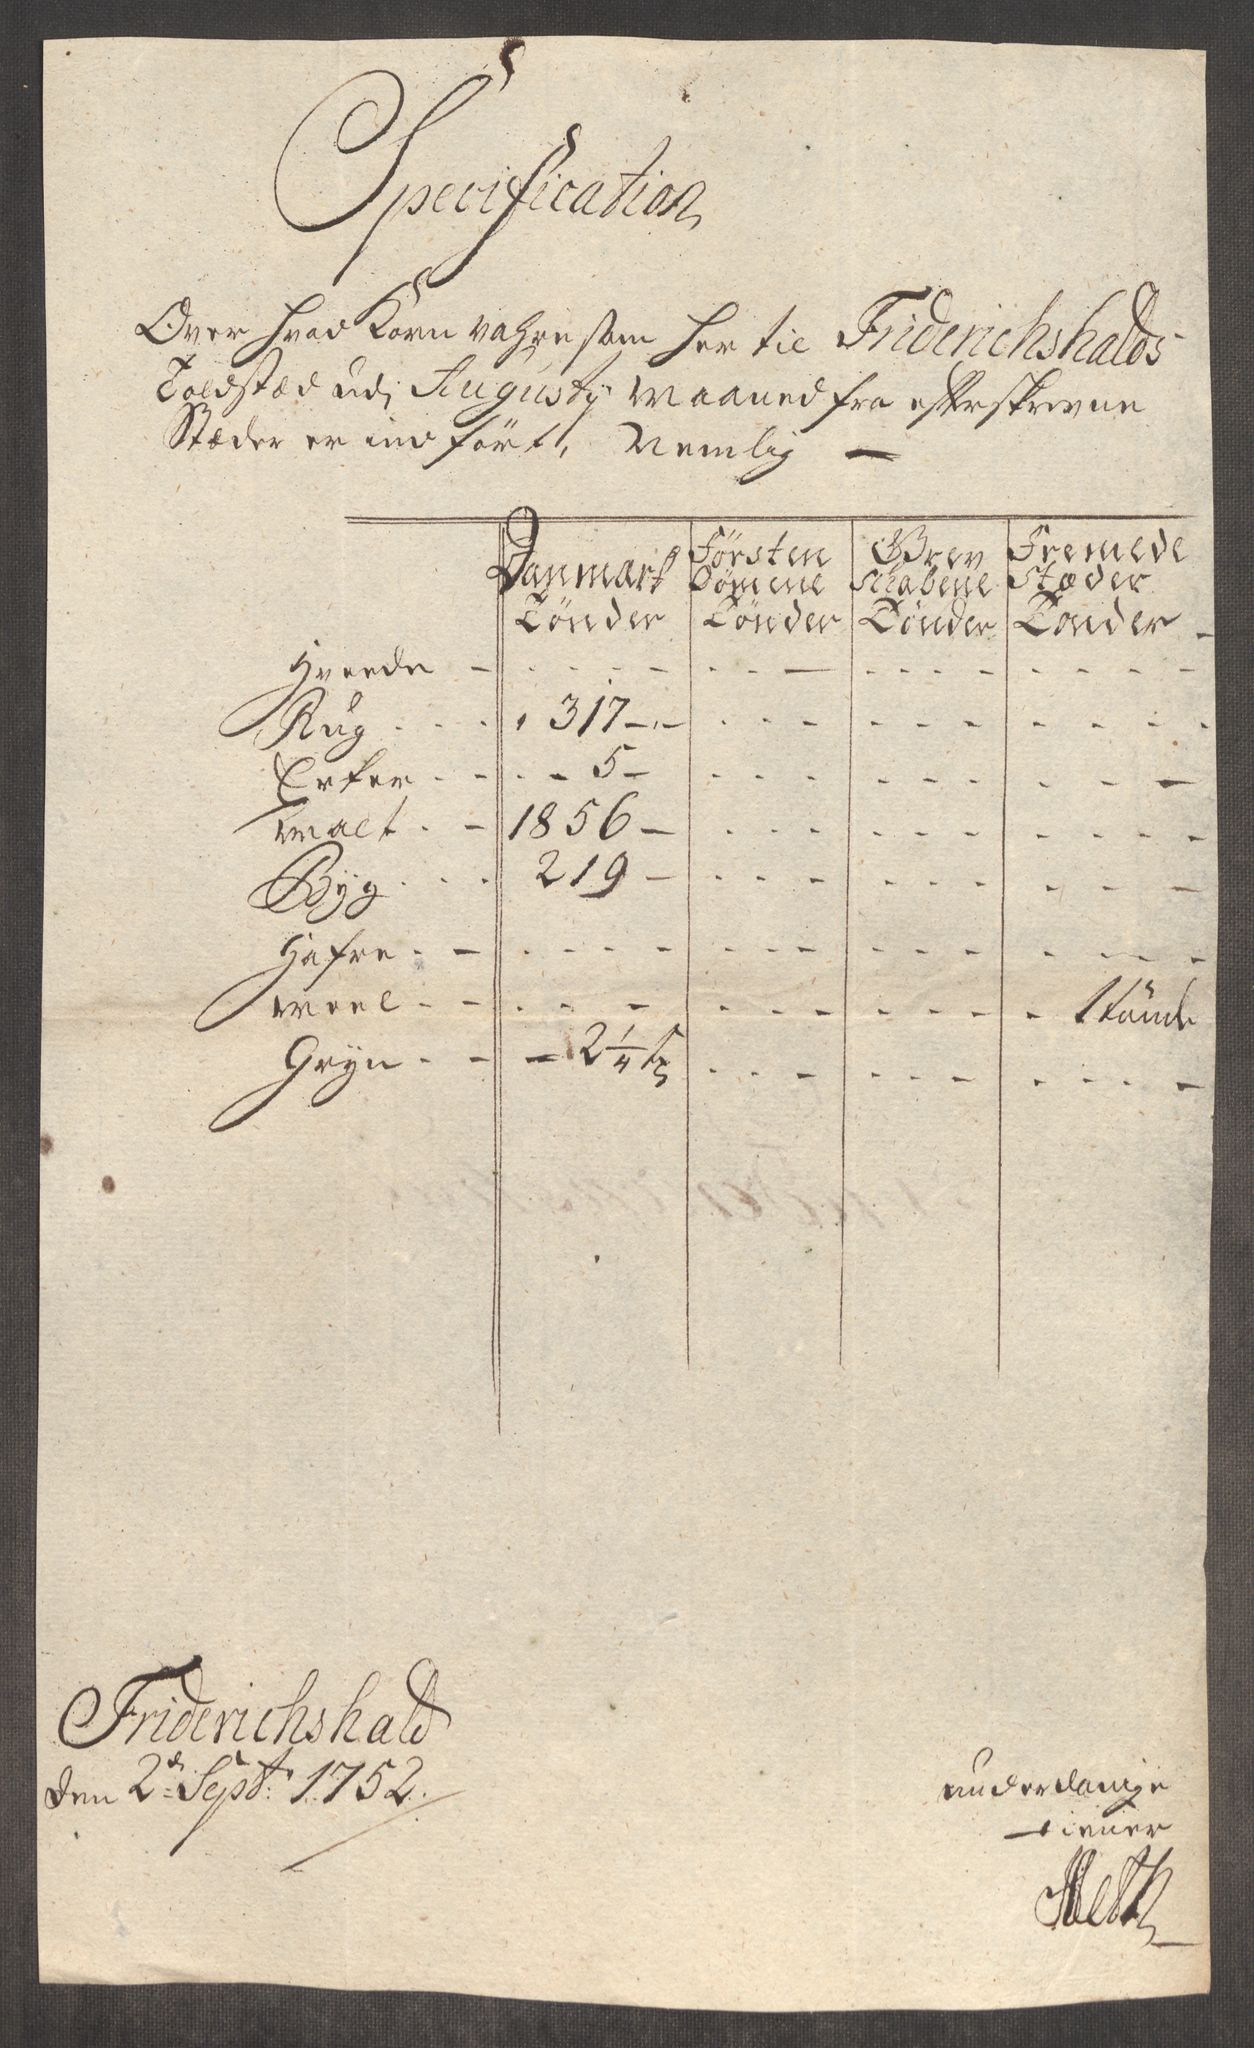 Specification
Over hvad Korn vahre som her til Friderichshalds
Toldstæd udj Augusty Maaned fra efterskrevne
Stæder er ind ført, Nemlig —
Danmark Førsten Grev Fremede
dømene schabene Stæder
Tönder Tönder Tönder Tönder
Hvede
Rug 317
Erter 5
Malt 1856
Byg 219
Hafre
Meel 1 tönde
Gryn 2 1/4
Friderichshald
den 2d Sept: 1752.
underdanige
tiener